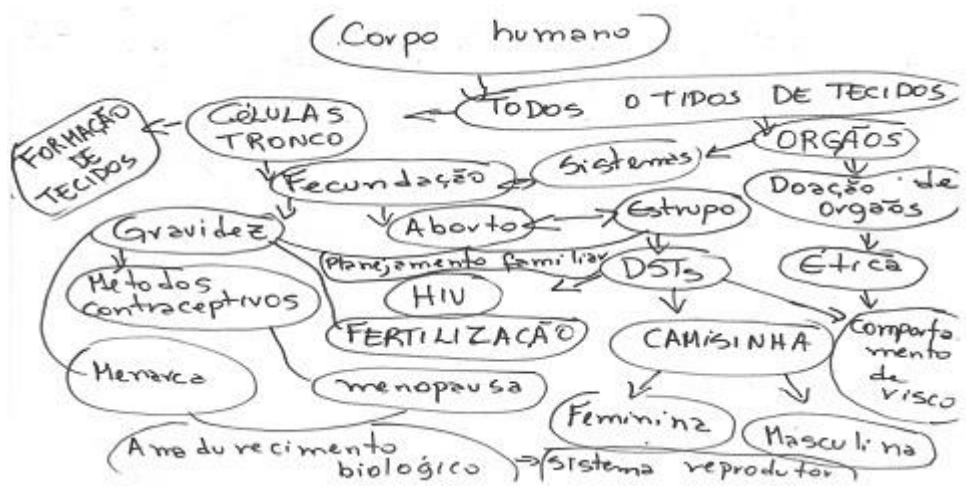 Corpo humano
TODOS O TIPOS DE TECIDOS
CÉLULAS
TRONCO
FORMAÇÃO
DE
TECIDOS
ORGÃOS
Sistemas
Fecundação
Doação de
orgaõs
Gravidez
Aborto
Estrupo
Planejamento familiar
DSTs
Ética
Métodos
contraceptivos
HIV
FERTILIZAÇÃO
CAMISINHA
Comporta
mento
de
risco
Menarca
menopausa
Feminina
Masculina
Amadurecimento
biológico
sistema reprodutor